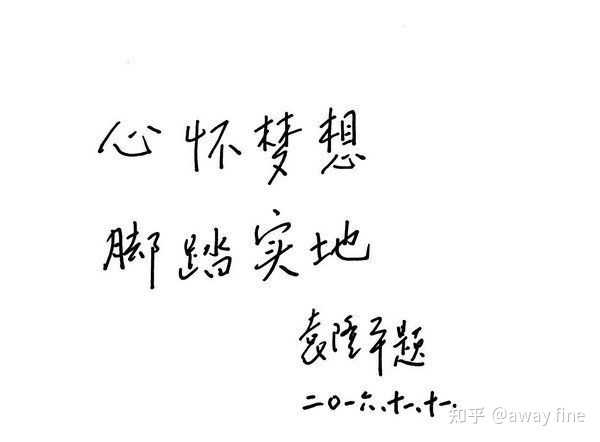 心怀梦想
脚踏实地
袁隆平题
二〇一六、十一、十一.
知乎 @away fine